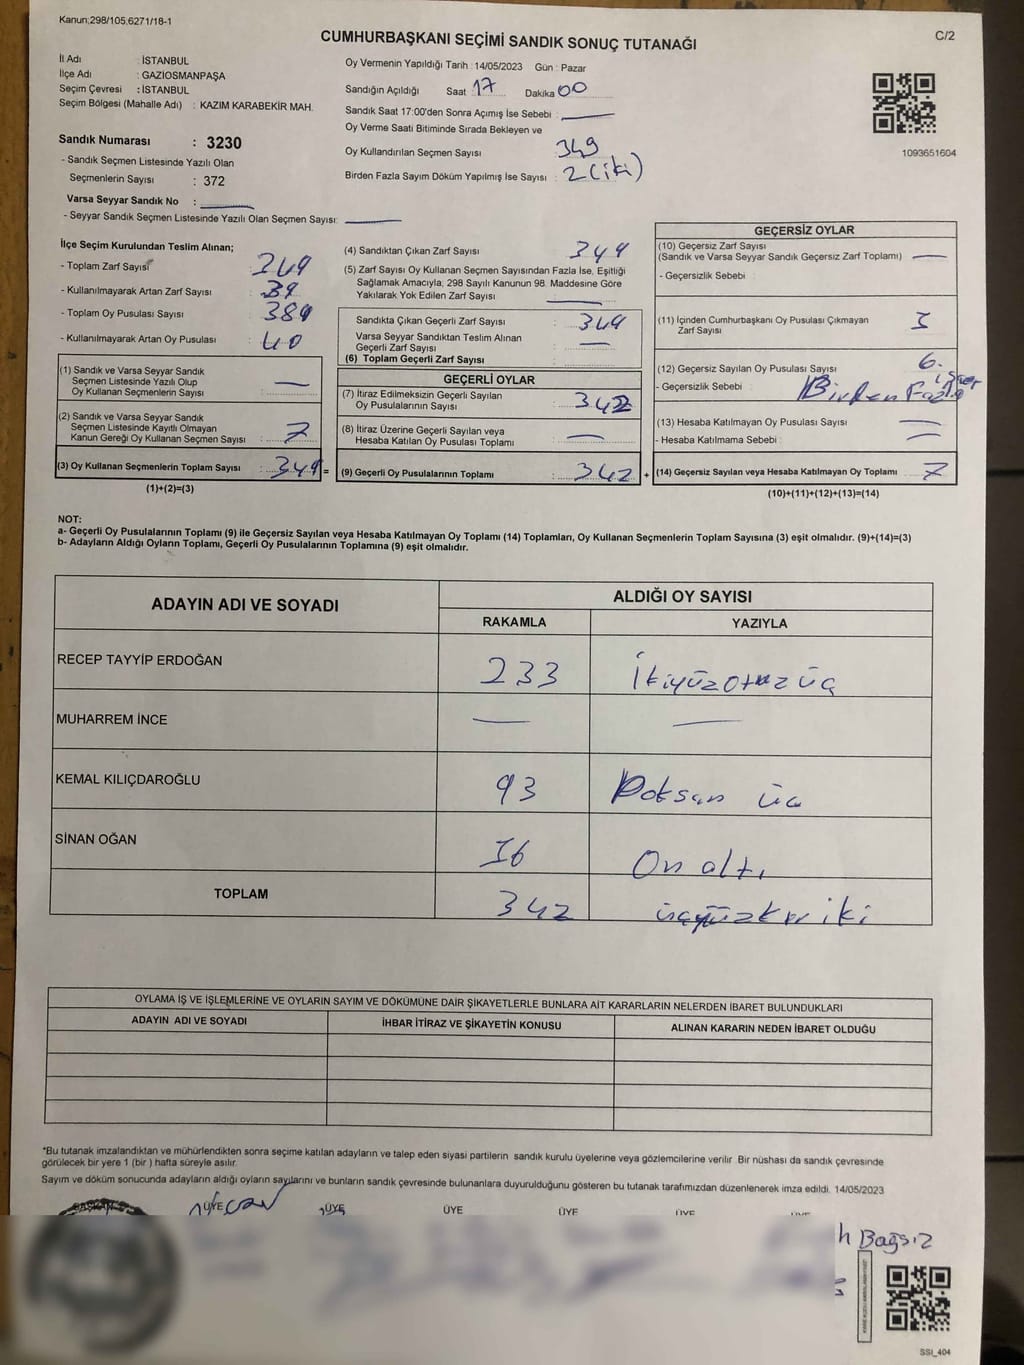 Kanun:298/105,6271/18-1
C/2
CUMHURBAŞKANI SEÇİMİ SANDIK SONUÇ TUTANAĞI
İl Adı : İSTANBUL
İlçe Adı : GAZİOSMANPAŞA
Seçim Çevresi : İSTANBUL
Seçim Bölgesi (Mahalle Adı) : KAZIM KARABEKİR MAH.
Sandık Numarası : 3230
- Sandık Seçmen Listesinde Yazılı Olan
Seçmenlerin Sayısı : 372
Varsa Seyyar Sandık No :
- Seyyar Sandık Seçmen Listesinde Yazılı Olan Seçmen Sayısı:
Oy Vermenin Yapıldığı Tarih : 14/05/2023 Gün : Pazar
Sandığın Açıldığı Saat 17 Dakika 00
Sandık Saat 17:00'den Sonra Açımış İse Sebebi :
Oy Verme Saati Bitiminde Sırada Bekleyen ve
Oy Kullandırılan Seçmen Sayısı 349
Birden Fazla Sayım Döküm Yapılmış İse Sayısı : 2 (iki)
1093651604
İlçe Seçim Kurulundan Teslim Alınan;
- Toplam Zarf Sayısı
- Kullanılmayarak Artan Zarf Sayısı : 39
- Toplam Oy Pusulası Sayısı : 389
- Kullanılmayarak Artan Oy Pusulası : 40
(1) Sandık ve Varsa Seyyar Sandık
Seçmen Listesinde Yazılı Olup
Oy Kullanan Seçmenlerin Sayısı :
(2) Sandık ve Varsa Seyyar Sandık
Seçmen Listesinde Kayıtlı Olmayan
Kanun Gereği Oy Kullanan Seçmen Sayısı : 7
(3) Oy Kullanan Seçmenlerin Toplam Sayısı : 349 =
(1)+(2)=(3)
(4) Sandıktan Çıkan Zarf Sayısı 349
(5) Zarf Sayısı Oy Kullanan Seçmen Sayısından Fazla İse, Eşitliği
Sağlamak Amacıyla; 298 Sayılı Kanunun 98. Maddesine Göre
Yakılarak Yok Edilen Zarf Sayısı :
Sandıkta Çıkan Geçerli Zarf Sayısı : 349
Varsa Seyyar Sandıktan Teslim Alınan
Geçerli Zarf Sayısı :
(6) Toplam Geçerli Zarf Sayısı :
GEÇERLİ OYLAR
(7) İtiraz Edilmeksizin Geçerli Sayılan
Oy Pusulalarının Sayısı : 342
(8) İtiraz Üzerine Geçerli Sayılan veya
Hesaba Katılan Oy Pusulası Toplamı :
(9) Geçerli Oy Pusulalarının Toplamı : 342 +
GEÇERSİZ OYLAR
(10) Geçersiz Zarf Sayısı
(Sandık ve Varsa Seyyar Sandık Geçersiz Zarf Toplamı) :
- Geçersizlik Sebebi :
(11) İçinden Cumhurbaşkanı Oy Pusulası Çıkmayan
Zarf Sayısı
(12) Geçersiz Sayılan Oy Pusulası Sayısı : 6.
- Geçersizlik Sebebi : Birden Fazla
(13) Hesaba Katılmayan Oy Pusulası Sayısı :
- Hesaba Katılmama Sebebi :
(14) Geçersiz Sayılan veya Hesaba Katılmayan Oy Toplamı : 7
(10)+(11)+(12)+(13)=(14)
NOT:
a- Geçerli Oy Pusulalarının Toplamı (9) ile Geçersiz Sayılan veya Hesaba Katılmayan Oy Toplamı (14) Toplamları, Oy Kullanan Seçmenlerin Toplam Sayısına (3) eşit olmalıdır. (9)+(14)=(3)
b- Adayların Aldığı Oyların Toplamı, Geçerli Oy Pusulalarının Toplamına (9) eşit olmalıdır.
ADAYIN ADI VE SOYADI ALDIĞI OY SAYISI
RAKAMLA YAZIYLA
RECEP TAYYİP ERDOĞAN 233 İkiyüzotuz üç
MUHARREM İNCE — —
KEMAL KILIÇDAROĞLU 93 Doksan üç
SİNAN OĞAN 16 On altı
TOPLAM 342 üçyüzkırkiki
OYLAMA İŞ VE İŞLEMLERİNE VE OYLARIN SAYIM VE DÖKÜMÜNE DAİR ŞİKAYETLERLE BUNLARA AİT KARARLARIN NELERDEN İBARET BULUNDUKLARI
ADAYIN ADI VE SOYADI İHBAR İTİRAZ VE ŞİKAYETİN KONUSU ALINAN KARARIN NEDEN İBARET OLDUĞU
*Bu tutanak imzalandıktan ve mühürlendikten sonra seçime katılan adayların ve talep eden siyasi partilerin sandık kurulu üyelerine veya gözlemcilerine verilir. Bir nüshası da sandık çevresinde
görülecek bir yere 1 (bir ) hafta süreyle asılır.
Sayım ve döküm sonucunda adayların aldığı oyların sayılarını ve bunların sandık çevresinde bulunanlara duyurulduğunu gösteren bu tutanak tarafımızdan düzenlenerek imza edildi. 14/05/2023
BAŞKAN ÜYE ÜYE ÜYE ÜYE ÜYE
Bağsız
SSI_404